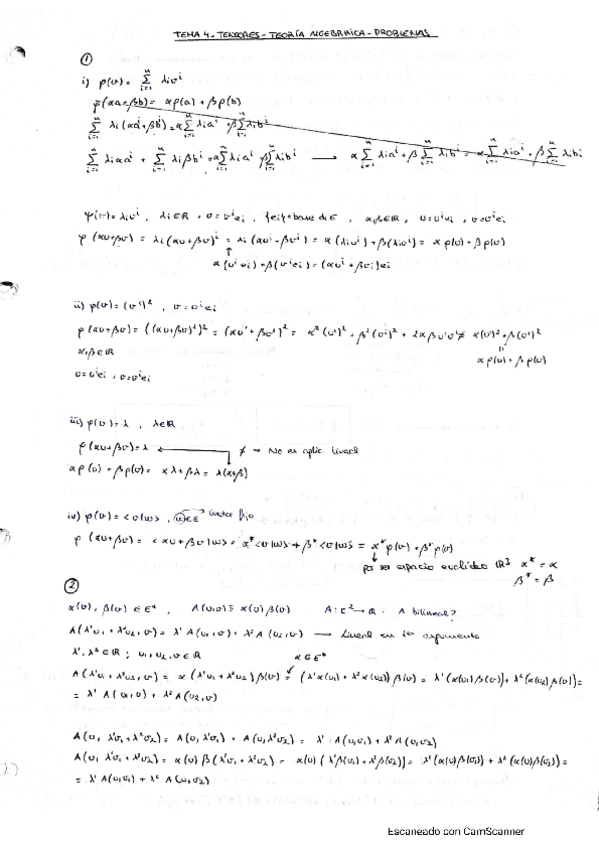 TEMA 4 - TENSORES - TEORÍA ALGEBRAICA - PROBLEMAS
①
i) φ(v) = Σ_{i=1}^n λi v^i
φ(αa+βb) = αφ(a) + βφ(b)
Σ_{i=1}^n λi (αa^i + βb^i) = αΣ_{i=1}^n λi a^i βΣλi b^i
Σ_{i=1}^n λi αa^i + Σ_{i=1}^n λi βb^i = αΣ_{i=1}^n λi a^i βΣ_{i=1}^n λi b^i ⟶ αΣ_{i=1}^n λi a^i + βΣ_{i=1}^n λi b^i = αΣ_{i=1}^n λi a^i + βΣ_{i=1}^n λi b^i
φ(v) = λi v^i , λi ∈ ℝ , v = v^i ei , {ei} = base de E , α,β ∈ ℝ , u = u^i ei , v = v^i ei
φ(αu+βv) = λi (αu+βv)^i = λi (αu^i + βv^i) = α(λi u^i) + β(λi v^i) = αφ(u) + βφ(v)
↑
α(u^i ei) + β(v^i ei) = (αu^i + βv^i) ei
ii) φ(v) = (v^1)^2 , v = v^i ei
φ(αu+βv) = ((αu+βv)^1)^2 = (αu^1 + βv^1)^2 = α^2 (u^1)^2 + β^2 (v^1)^2 + 2αβ u^1 v^1 ≠ α(u^1)^2 + β(v^1)^2
α,β ∈ ℝ
αφ(u) + βφ(v)
u = u^i ei , v = v^i ei
iii) φ(v) = λ , λ ∈ ℝ
φ(αu+βv) = λ
≠ → No es aplic. lineal
αφ(u) + βφ(v) = αλ + βλ = λ(α+β)
iv) φ(v) = <v|w> , w ∈ E vector fijo
φ(αu+βv) = <αu+βv|w> = α* <u|w> + β* <v|w> = α* φ(u) + β* φ(v)
por ser espacio euclídeo ℝ³ α* = α
β* = β
②
α(v), β(v) ∈ E* , A(u,v) ≡ α(u) β(v) A: E² → ℝ . A bilineal?
A(λ¹u1 + λ²u2, v) = λ¹ A(u1,v) + λ² A(u2,v) ⟶ Lineal en 1er argumento
λ¹, λ² ∈ ℝ ; u1, u2, v ∈ ℝ α ∈ E*
A(λ¹u1 + λ²u2, v) = α(λ¹u1 + λ²u2) β(v) = (λ¹α(u1) + λ²α(u2)) β(v) = λ¹(α(u1)β(v)) + λ²(α(u2)β(v)) =
= λ¹ A(u1,v) + λ² A(u2,v)
A(u, λ¹v1 + λ²v2) = A(u, λ¹v1) + A(u, λ²v2) = λ¹ A(u,v1) + λ² A(u,v2)
A(u, λ¹v1 + λ²v2) = α(u) β(λ¹v1 + λ²v2) = α(u) (λ¹β(v1) + λ²β(v2)) = λ¹(α(u)β(v1)) + λ²(α(u)β(v2)) =
= λ¹ A(u,v1) + λ² A(u,v2)
Escaneado con CamScanner